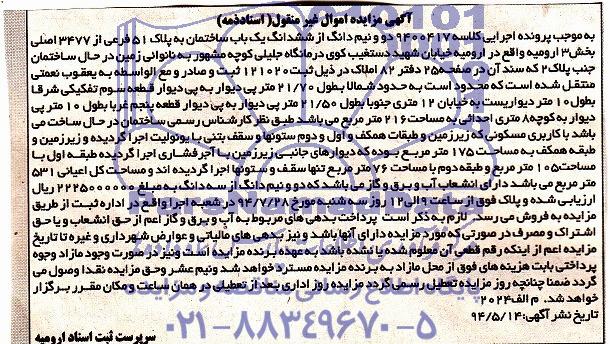 آگهی مزایده اموال غیر منقول( اسنادذمه)
به موجب پرونده اجرایی کلاسه ۹۴۰۰۴۱۷ دو و نیم دانگ از ششدانگ یک باب ساختمان به پلاک ۵۱ فرعی از ۳۴۷۷ اصلی
بخش۳ ارومیه واقع در ارومیه خیابان شهید دستغیب کوی درمانگاه جلیلی کوچه مشهور به نانوائی زمین در حال ساختمان
جنب پلاک۲ که سند آن در صفحه۲۵ دفتر ۸۲ املاک در ذیل ثبت ۱۲۱۰۲۰ ثبت و صادر و مع الواسطه به یعقوب نعمتی
منتقل شده است که محدود است به حدود شمالا بطول ۲۱/۷۰ متر پی دیوار به پی دیوار قطعه سوم تفکیکی شرقا
بطول ۱۰ متر دیواریست به خیابان ۱۲ متری جنوبا بطول ۲۱/۵۰ متر پی دیوار به پی دیوار قطعه پنجم غربا بطول ۱۰ متر پی
دیوار به کوچه۸ متری احداثی به مساحت ۲۱۶ متر مربع می باشد طبق نظر کارشناس رسمی ساختمان در حال ساخت می
باشد با کاربری مسکونی که زیرزمین و طبقات همکف و اول و دوم ستونها و سقف بتنی با یونولیت اجرا گردیده و زیرزمین و
طبقه همکف به مساحت ۱۷۵ متر مربع بوده که دیوارهای جانبی زیرزمین با آجر فشاری اجرا گردیده طبقه اول با
مساحت۱۰۵ متر مربع و طبقه دوم با مساحت ۷۶ متر مربع تنها سقف و ستونها اجرا گردیده اند و مساحت کل اعیانی ۵۳۱
متر مربع می باشد دارای انشعاب آب و برق و گاز می باشد که دو و نیم دانگ از سه دانگ به مبلغ ۲۲۲۵۰۰۰۰۰۰ ریال
ارزیابی شده و پلاک فوق از ساعت ۹ الی ۱۲ روز سه شنبه مورخ ۹۴/۷/۲۸ در شعبه اجرا واقع در اداره ثبت از طریق
مزایده به فروش می رسد. لازم به ذکر است پرداخت بدهی های مربوط به آب و برق و گاز اعم از حق انشعاب و یا حق
اشتراک و مصرف در صورتی که مورد مزایده دارای آنها باشد و نیز بدهی های مالیاتی و عوارض شهرداری و غیره تا تاریخ
مزایده اعم از اینکه رقم قطعی آن معلوم شده یا نشده باشد به عهده برنده مزایده است ونیز در صورت وجود مازاد وجوه
پرداختی بابت هزینه های فوق از محل مازاد به برنده مزایده مسترد خواهد شد ونیم عشر وحق مزایده نقدا وصول می
گردد ضمنا چنانچه روز مزایده تعطیل رسمی گردد مزایده روز اداری بعد از تعطیلی در همان ساعت و مکان مقرر برگزار
خواهد شد. م الف۲۰۲۴
تاریخ نشر آگهی: ۹۴/۵/۱۴
سرپرست ثبت اسناد ارومیه
۰۲۱-۸۸۳۴۹۶۷۰-۵